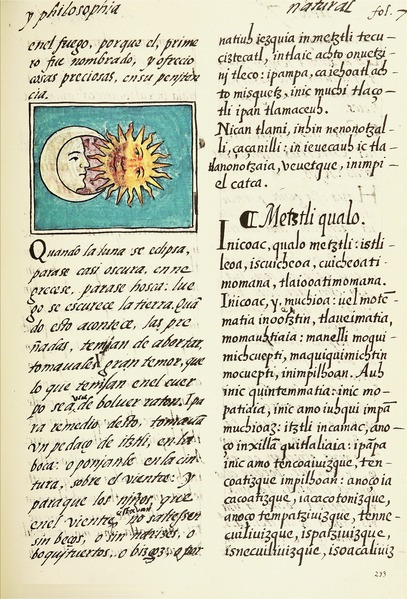 y philosophia
natural
fol. 7
enel fuego, porque el, prime
ro fue nombrado, y ofrecio
cosas preciosas, en su peniten
cia.
Quando la luna se eclipsa,
parase casi oscura, enne
grecese, parase hosca: lue
go se escurece la tierra. Quā
do esto acontece, las pre
ñadas, temjan de abortar,
tomauales gran temor, que
lo que temjan enel cuer
po se auia de boluer raton. I pa
ra remedio desto, tomauā
vn pedaço de itztli, en la
boca: o ponjanle en la cin
tura, sobre el vientre: y
para que los niños, que
enel vientre estauan, no saliessen
sin beços, o sin narizes, o
boquituertos, o bizcos, o por
natiuh iezquia in metztli tecu
ciztecatl, intlaic achto onuetzi
nj tleco: ipampa, ca iehoatl ach
to misquetz, inic muchi tlaço
tli ipan tlamaceuh.
Nican tlami, inhin nenonotzal
li, çaçanilli: in ieuecauh ic tla
tlanonotzaia, veuetque, inimpi
el catca.
¶ Metztli qualo.
Inicoac, qualo metztli: istli
leoa, iscuicheoa, cuicheoati
momana, tlaiooatimomana.
Inicoac, y, muchioa: uel mote
matia inootztin, tlaueimatia,
momauhtiaia: manelli moqui
michcuepti, maquiquimichtin
mocuepti, inimpilhoan. Auh
inic quintemmatia: inic mo
patiaia, inic amo iuhqui impā
muchioaz: itztli incamac, ano
ço inxillā quitlaliaia: ipāpa
inic amo tencoaiuizque, ten
coatizque impilhoan: anoço ia
cacoatizque, iacacotonizque,
anoço tempatziuizque, tenne
cuiliuizque, ispatziuizque,
isnecuiliuizque, isoacaliuiz
233